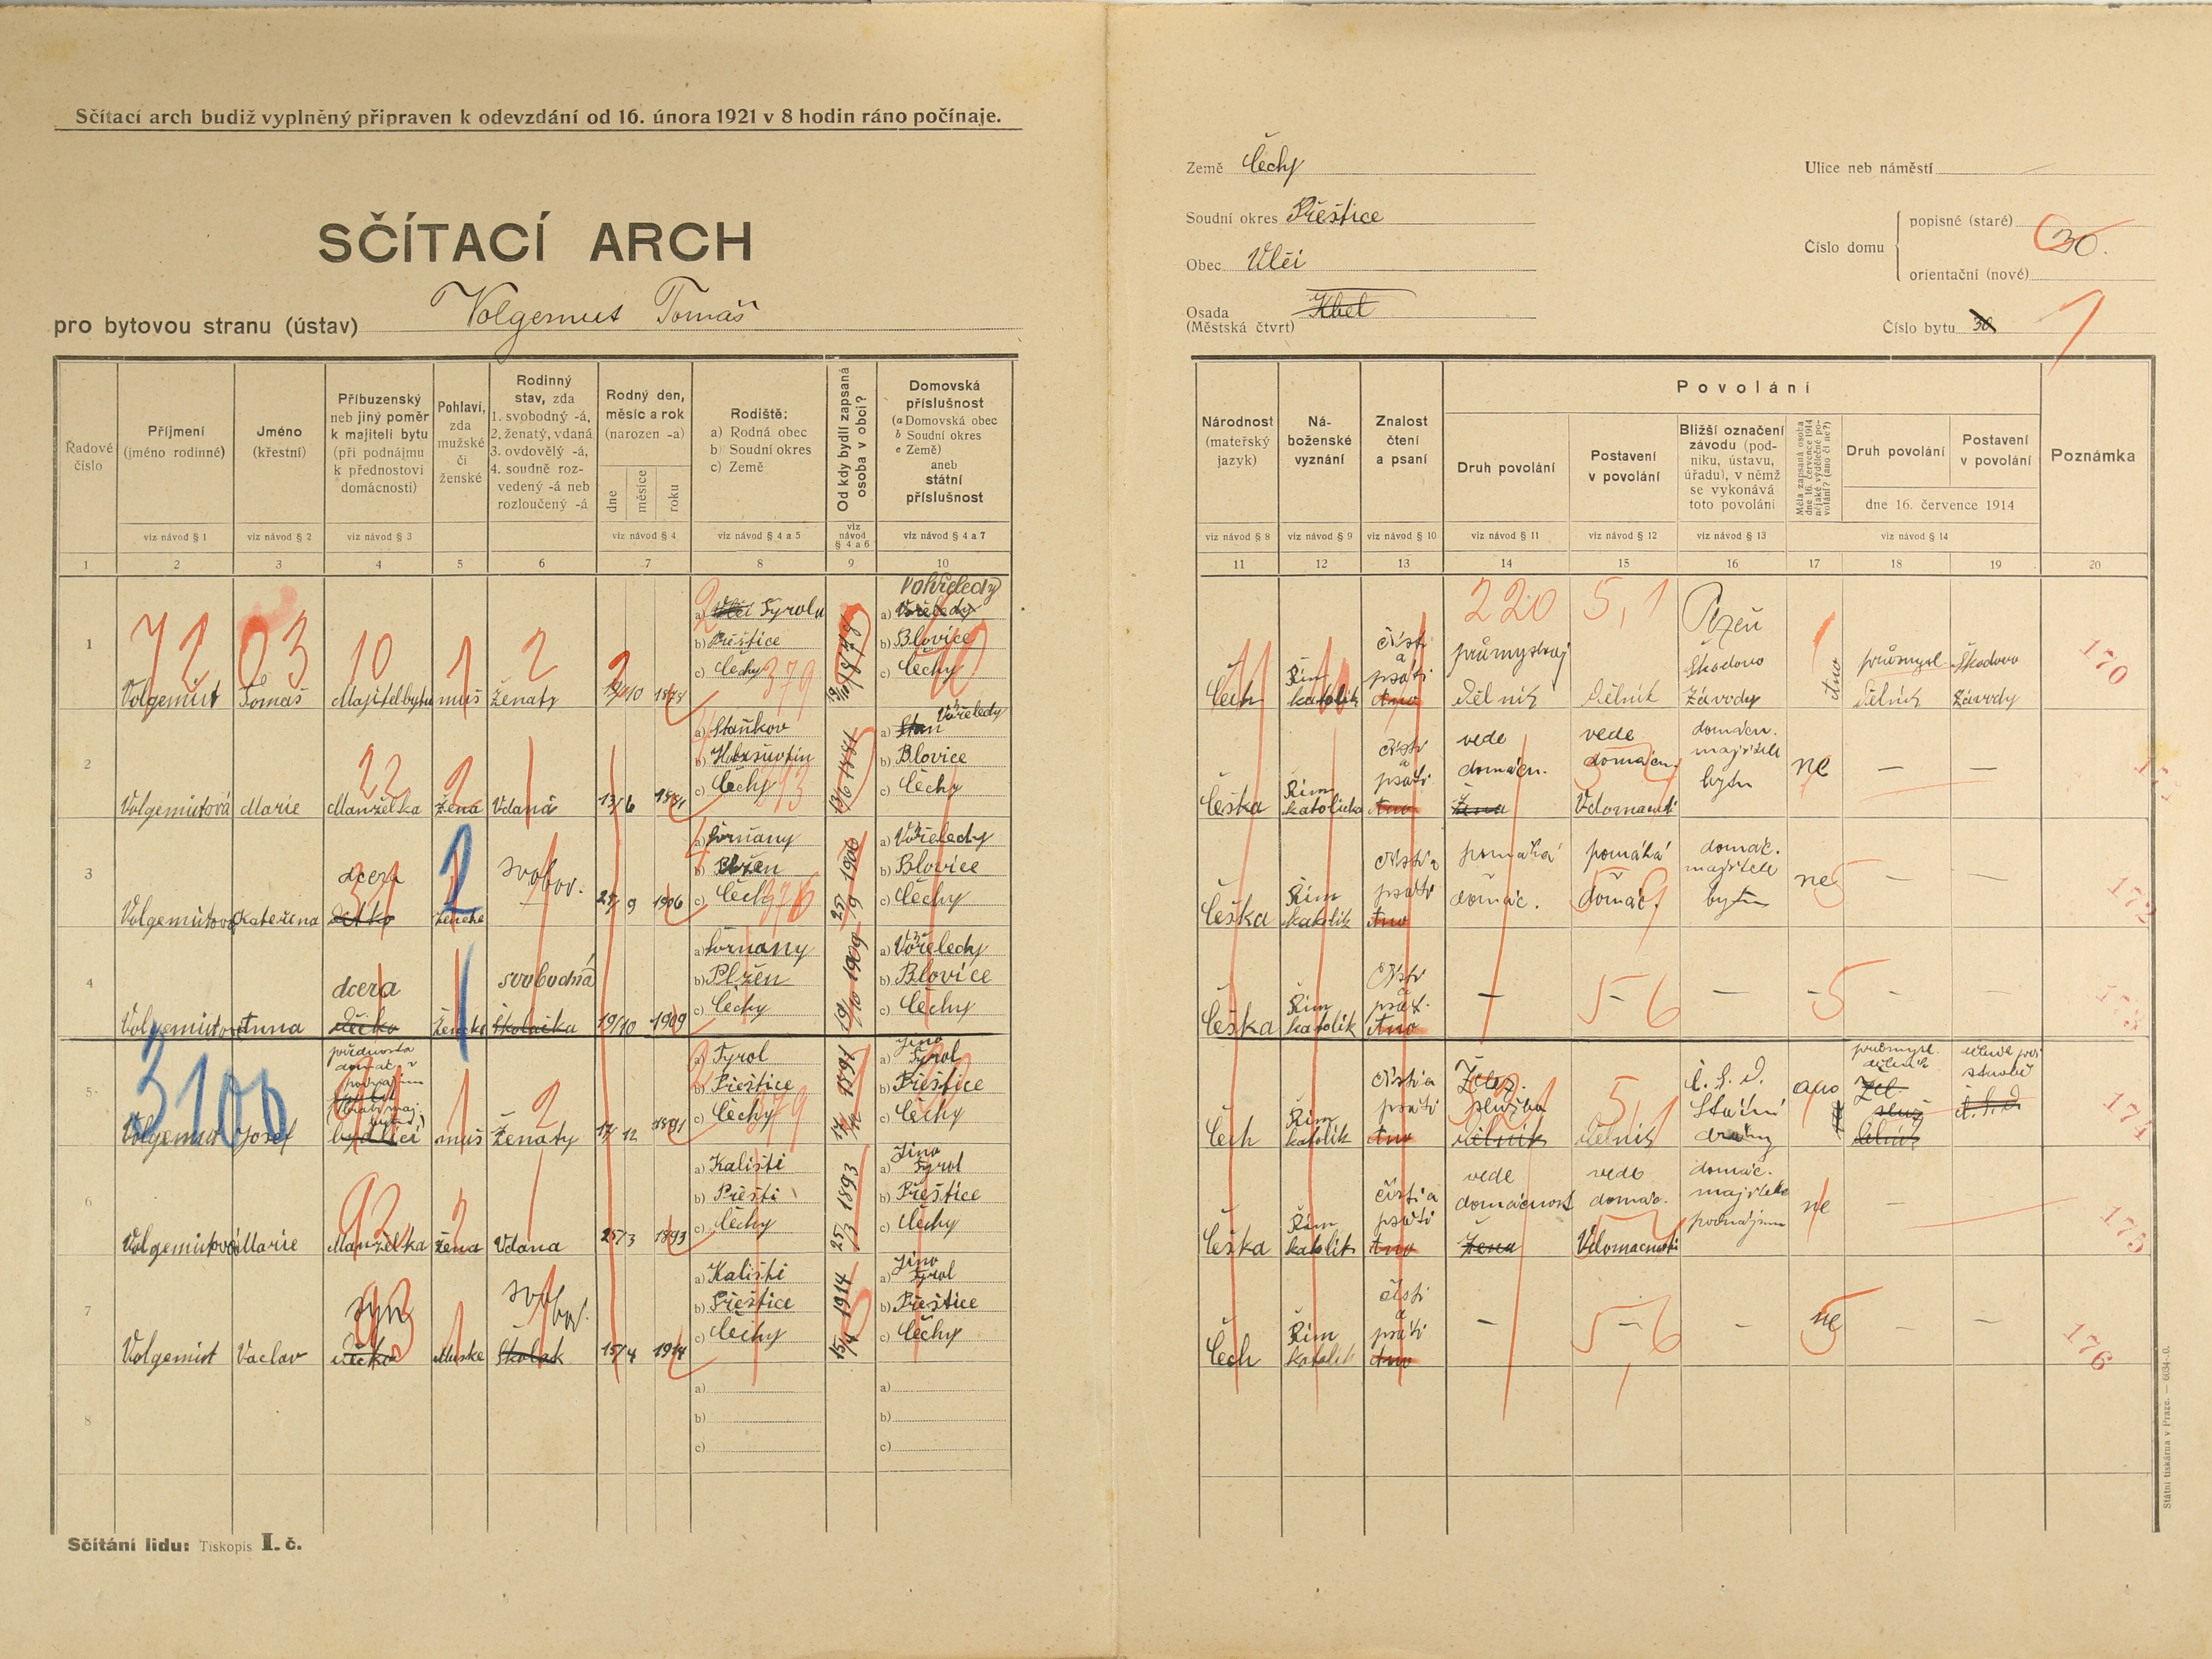 Sčítací arch budiž vyplněný připraven k odevzdání od 16. února 1921 v 8 hodin ráno počínaje.
SČÍTACÍ ARCH
pro bytovou stranu (ústav) Volgemut Tomáš
Země Čechy
Soudní okres Přeštice
Obec Vlčí
Osada (Městská čtvrt) Kbel
Ulice neb náměstí
Číslo domu
popisné (staré)
30.
orientační (nové)
Číslo bytu 30
1
Řadové číslo
Příjmení (jméno rodinné)
Jméno (křestní)
Příbuzenský neb jiný poměr k majiteli bytu (při podnájmu k přednostovi domácnosti)
Pohlaví, zda mužské či ženské
Rodinný stav, zda 1. svobodný -á, 2. ženatý, vdaná 3. ovdovělý -á, 4. soudně rozvedený -á neb rozloučený -á
Rodný den, měsíc a rok (narozen -a)
dne
měsíce
roku
Rodiště:
a) Rodná obec
b) Soudní okres
c) Země
Od kdy bydlí zapsaná osoba v obci?
Domovská příslušnost
(a Domovská obec
b Soudní okres
c Země)
aneb státní příslušnost
Národnost (mateřský jazyk)
Náboženské vyznání
Znalost čtení a psaní
Povolání
Druh povolání
Postavení v povolání
Bližší označení závodu (podniku, ústavu, úřadu), v němž se vykonává toto povolání
Měla zapsaná osoba dne 16. července 1914 nějaké výdělečné povolání? (ano či ne?)
Druh povolání
Postavení v povolání
dne 16. července 1914
Poznámka
viz návod § 1
viz návod § 2
viz návod § 3
viz návod § 4
viz návod § 4 a 5
viz návod § 4 a 6
viz návod § 4 a 7
viz návod § 8
viz návod § 9
viz návod § 10
viz návod § 11
viz návod § 12
viz návod § 13
viz návod § 14
1 2 3 4 5 6 7 8 9 10 11 12 13 14 15 16 17 18 19 20
1 Volgemut Tomáš Majitel bytu muš Ženatý 19/10
a) Tyrolu
b) Přeštice
c) Čechy 379
a) Vohřeledy
b) Blovice
c) Čechy
Čech Řím katolik Čísti a psáti Ano
220 5,1
průmyslový Dělník Dělník
Plzeň Škodovo Závody
Ano průmysl Dělník Škodovo Závody
170
2 Volgemutová Marie Manželka Žena Vdaná 13/6 1881
a) Staňkov
b) Horšův týn
c) Čechy
13/6 1881
a) Vořeledy
b) Blovice
c) Čechy
Češka Řím katolicka čísti a psáti Ano
vede domácn. Žena
vede domácn. Vdomacnosti
domácn. majitele bytu
ne — —
3 Volgemutova Kateřina dcera Děcko Ženske svobod. 25/9 1906
b) Plzen
c) Čech 376
25/9 1906
a) Vořeledy
b) Blovice
c) Čechy
Češka Řím katolik čísti a psáti Ano
pomáhá domác. pomáhá domác.
domác. majitele bytu
ne — —
172
4 Volgemutova Anna dcera Děcko Ženske svobodná Školačka 19/10 1909
b) Plzěn
c) Čechy
19/10 1909
a) Vořeledy
b) Blovice
c) Čechy
Češka Řím katolik Čísti a psát. Ano
— 5-6 — — — —
173
3100
5 Volgemut Josef přednosta domác. v podnájmu bydlící muš Ženatý 17/12 1891
a) Tyrol
b) Přeštice
c) Čechy 379
17/12 1891
a) Jino Tyrol
b) Přeštice
c) Čechy
Čech Řím katolik čísti a psáti Ano
Želez. služba dělník Dělník
Č. S. D. Státní dráhy
ano průmysl. dělník Žel. služ Dělník
Č. S. D.
174
6 Volgemutová Marie Manželka Žena Vdana 25/3 1893
a) Kaliště
b) Přešti
c) Čechy
25/3 1893
a) Jino Tyrol
b) Přeštice
c) Čechy
Češka Řím katolik čísti a psáti Ano
vede domácnost Žena
vede domác. Vdomacnosti
domác. majitele podnájmu
ne —
175
7 Volgemut Vaclav syn Děcko Muske svobod. Školak 15/4 1914
a) Kaliště
b) Přeštice
c) Čechy
15/4 1914
a) Jino Tyrol
b) Přeštice
c) Čechy
Čech Řím katolik čísti a psáti Ano
— 5-6 — ne — —
176
8
a)
b)
c)
a)
b)
c)
Sčítání lidu: Tiskopis I. č.
Státní tiskárna v Praze. — 6034-20.